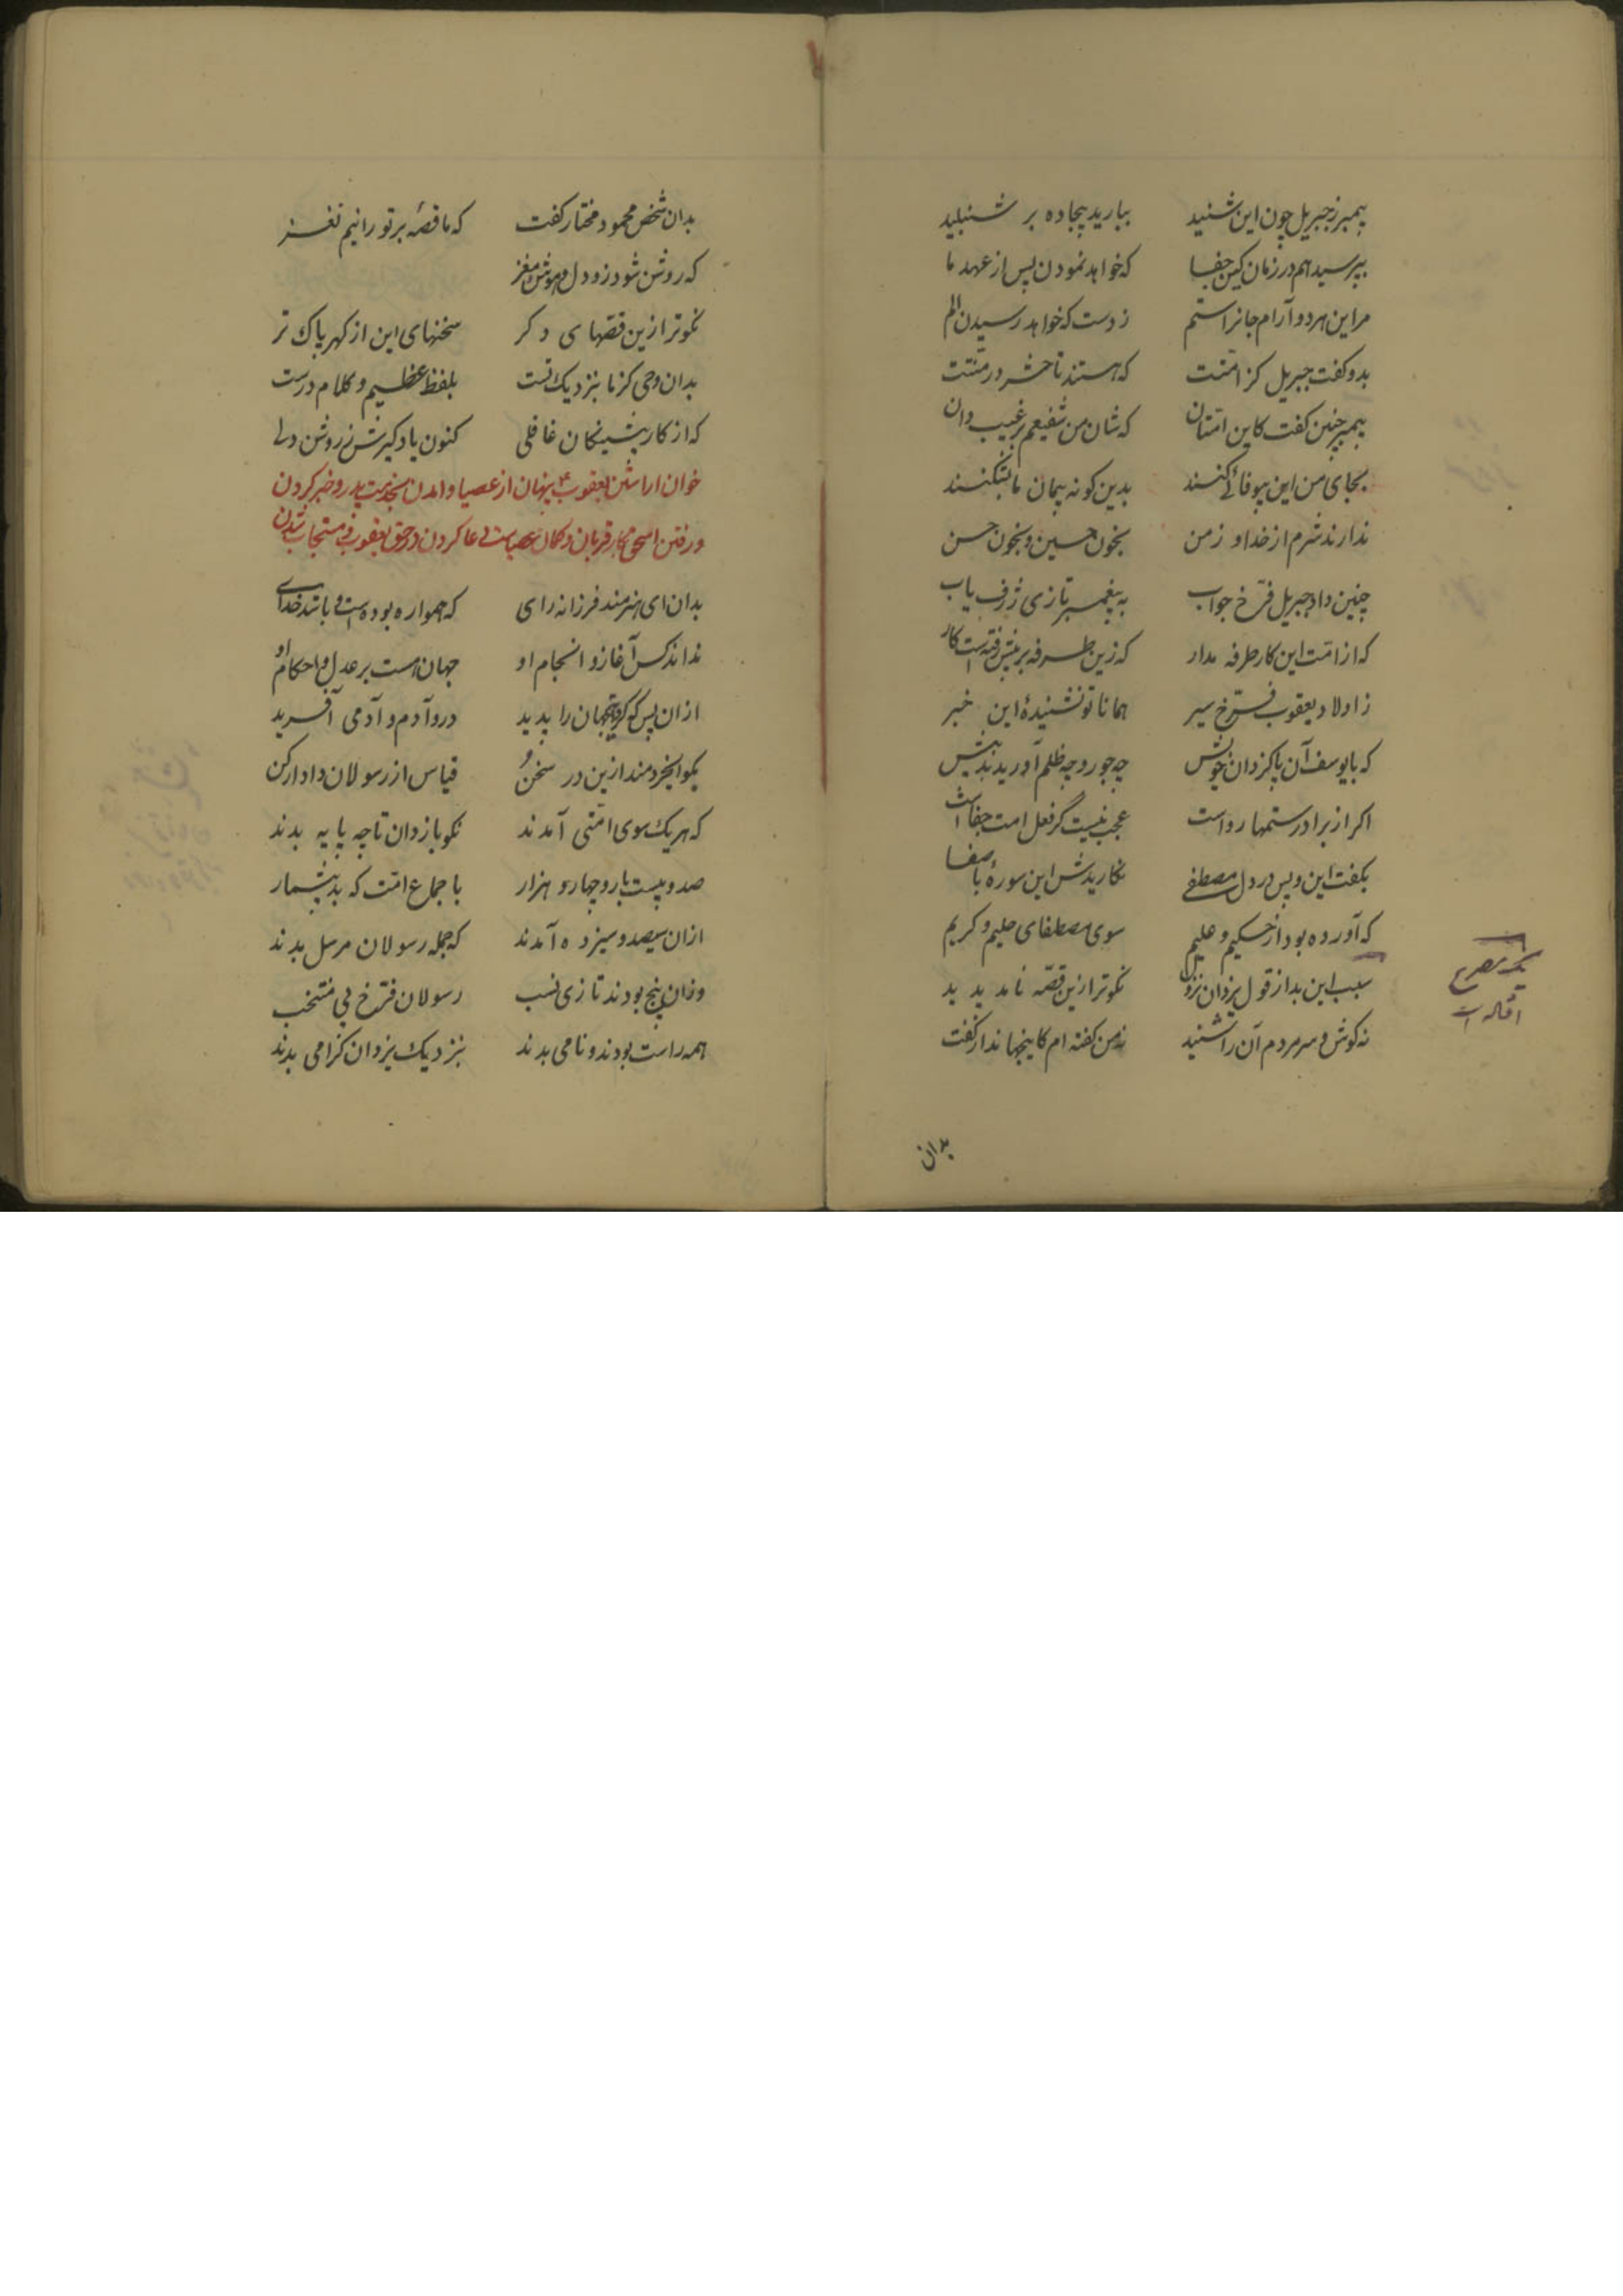 پیمبر ز جبریل چون این شنید ببارید بیجاده بر شنبلید
بپرسید هم در زمان کین جفا که خواهد نمودن پس از عهد ما
مر این هر دو آرام جانرا ستم ز دست که خواهد رسیدن الم
بدو گفت جبریل کز امتت که هستند تا حشر در منتت
پیمبر چنین گفت کاین امتان که شان من شفیعم بر غیب دان
بجای من این بیوفائی کنند بدین گونه پیمان ما بشکنند
ندارند شرم از خدا و ز من بخون حسین و بخون حسن
چنین داد جبریل فرّخ جواب به پیغمبر تازی ژرف یاب
که از امت این کار طرفه مدار که زین طرفه بر پیش رفته است کار
ز اولاد یعقوب فرّخ سیر همانا تو نشنیدهٔ این خبر
که با یوسف آن پاکزدان خویش چه جور و چه ظلم آوریدند پیش
اگر از برادر ستمها رواست عجب نیست گر فعل امت جفاست
بگفت این و پس در دل مصطفی نگاریدش این سورهٔ با صفا
که آورده بود از حکیم و علیم سوی مصطفای حلیم و کریم
سبب این بد از قول یزدان نزول نکوتر ازین قصّه نامد پدید
نه گوش و سر مردم آن را شنید نه من گفته ام کاینجها ندار گفت
یک مصرع
بدان
بدان شخص محمود مختار گفت که ما قصّه بر تو رانیم نغز
که روشن شود زو دل و هوش و مغز
نکوتر ازین قصّهای دگر سخنهای این از گهر پاک تر
بدان وحی کز ما بنزدیک تست بلفظ عظیم و کلام درست
که از کار پیشینگان غافلی کنون یادگیرش ز روشن دلی
خوان اراستن یعقوب ع پنهان از عصیا و امدن بخدمت پدر و خبر کردن
و رفتن اسحق بکار قربان و کمان عصیاست دعا کردن در حق یعقوب و مستجاب شدن
بدان ای هنرمند فرزانه رای که همواره بوده است و باشد خدای
نداند کس آغاز و انجام او جهان هست بر عدل و احکام او
ازان پس که کرد این جهان را پدید درو آدم و آدمی آفرید
نکو ایخردمند ازین در سخن قیاس از رسولان دادار کن
که هریک سوی امتی آمدند نکو بازدان تا چه پایه بدند
صد و بیست بار و چهار و هزار باجماع امت که بد بیشمار
ازان سیصد و سیزده آمدند که جمله رسولان مرسل بدند
وزان پنج بودند تازی نسب رسولان فرّخ پی منتخب
همه راست بودند و نامی بدند بنزدیک یزدان گرامی بدند